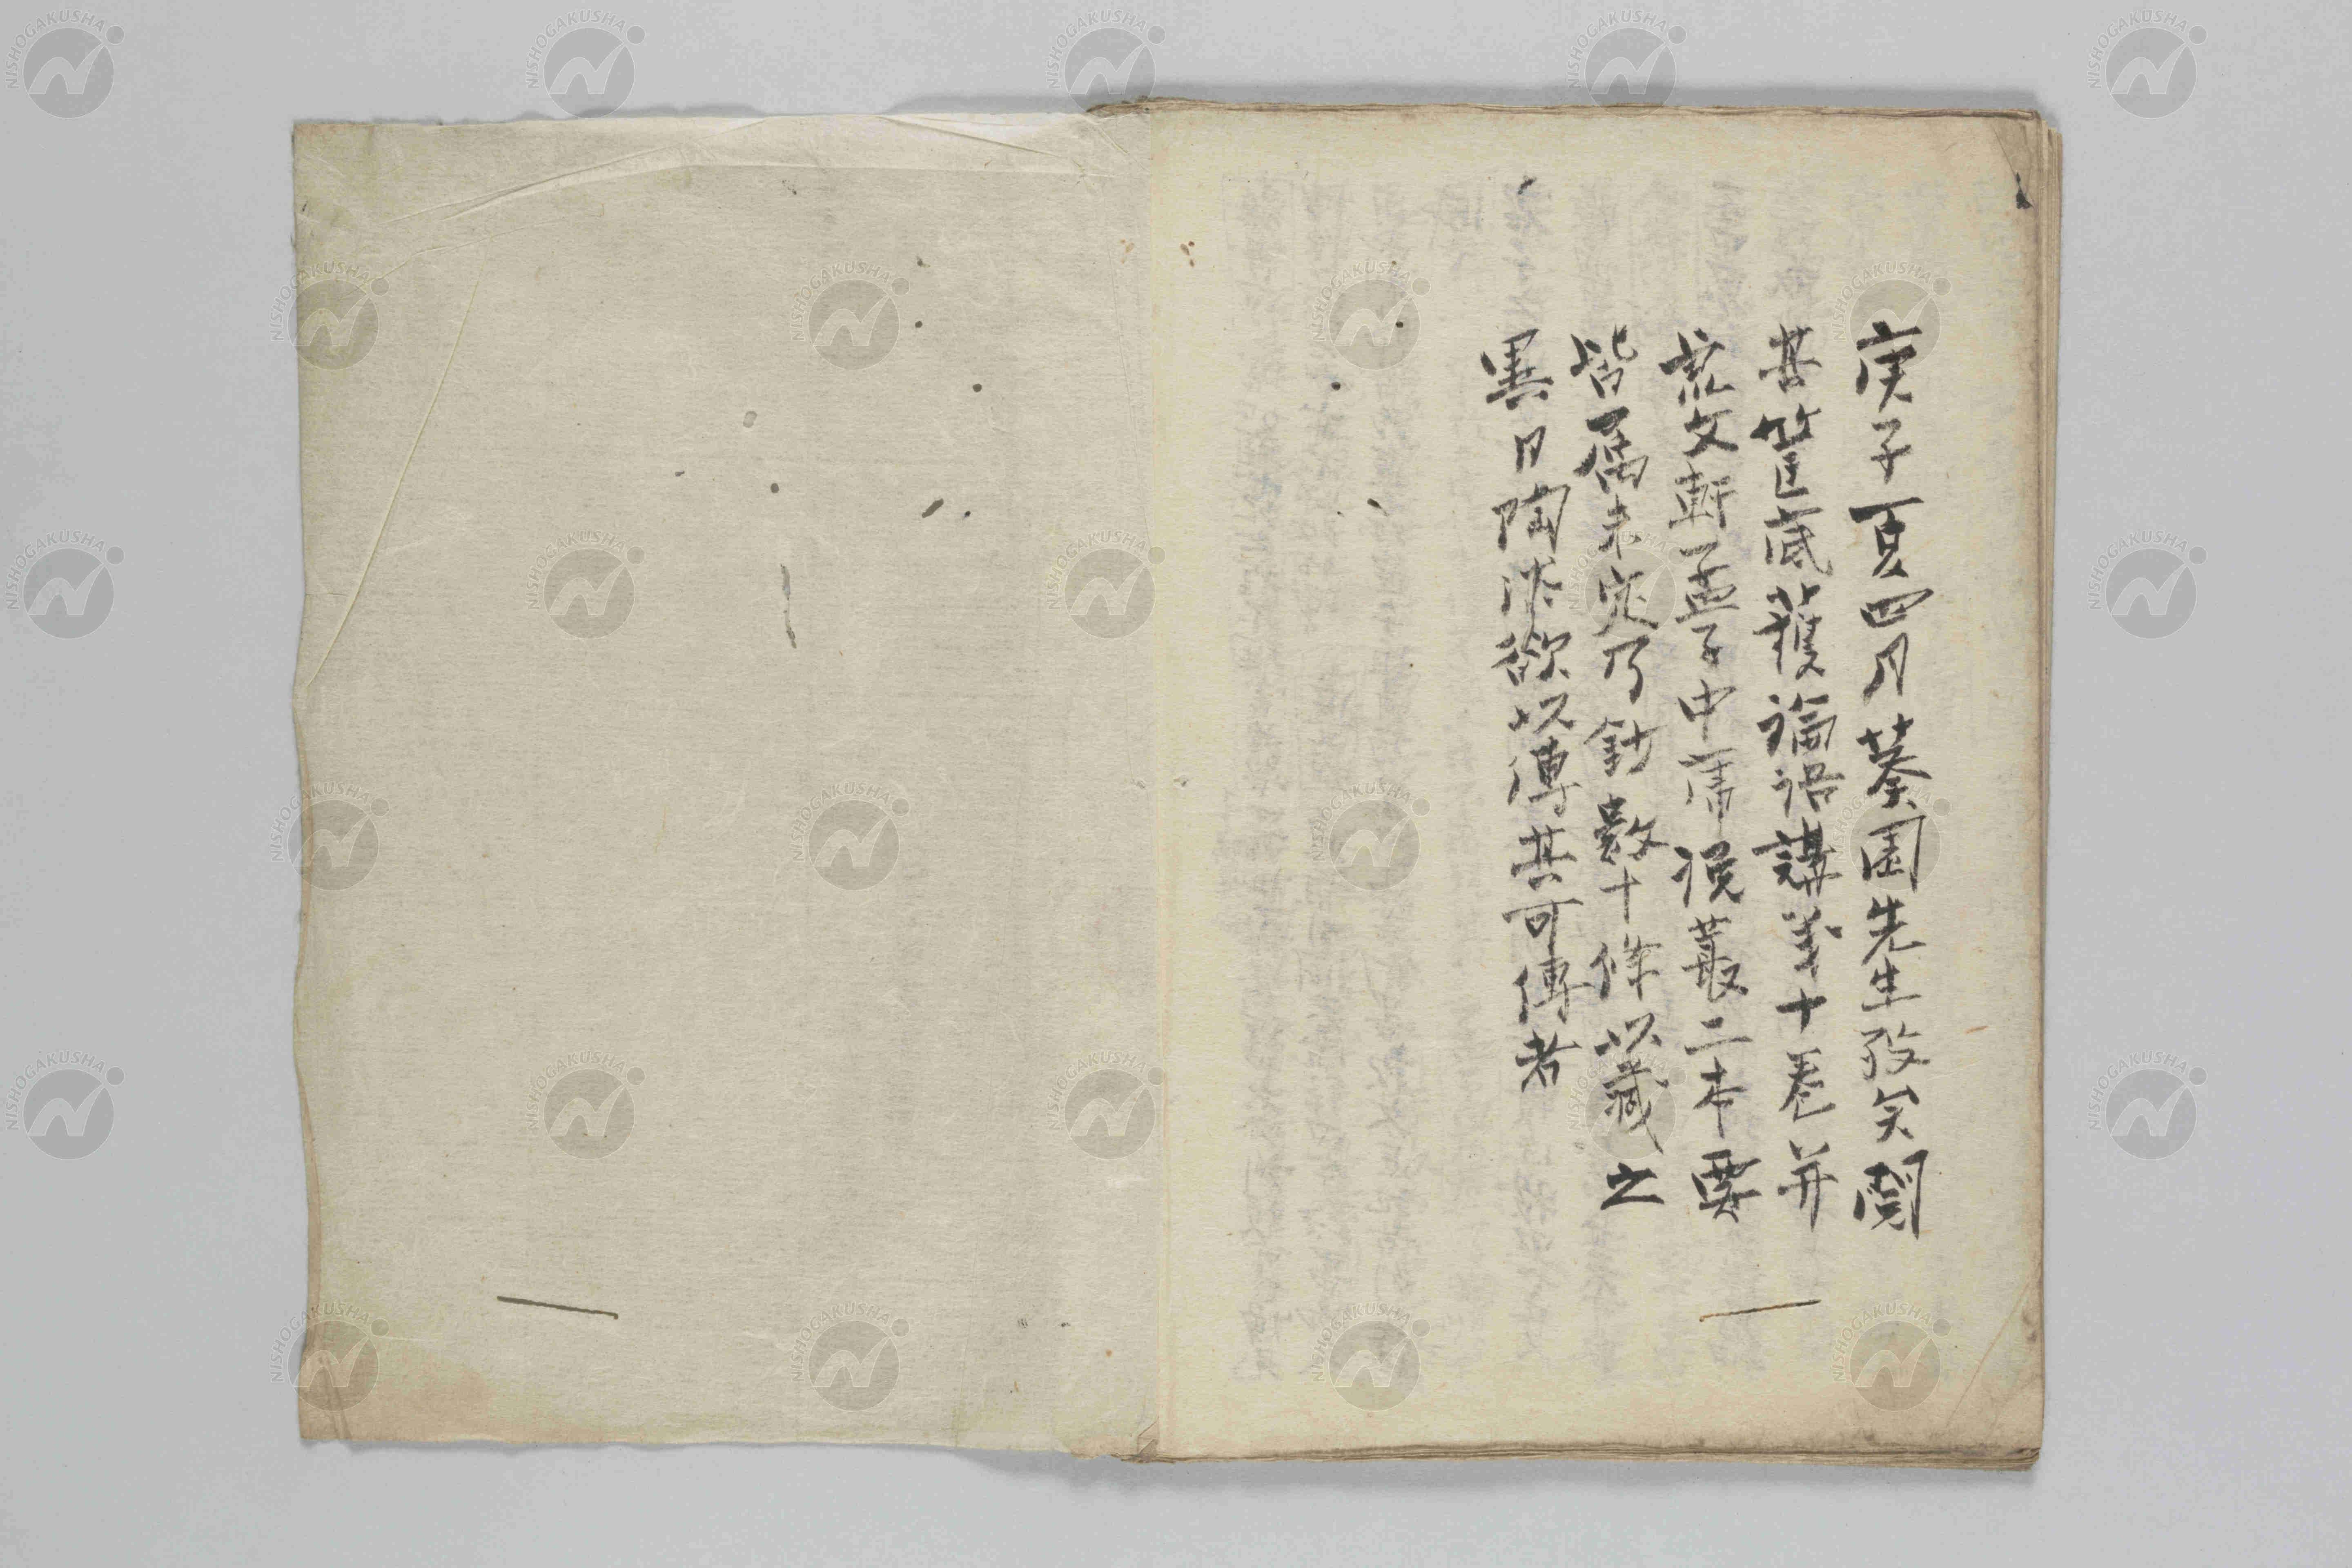 庚子夏四月葵園先生歿矣閱
其筐底獲論語講義十卷并
文軒孟子中庸漫叢二本要
皆屬未定乃鈔數十條以藏之
異日陶汰欲以傳其可傳者
NISHOGAKUSHA